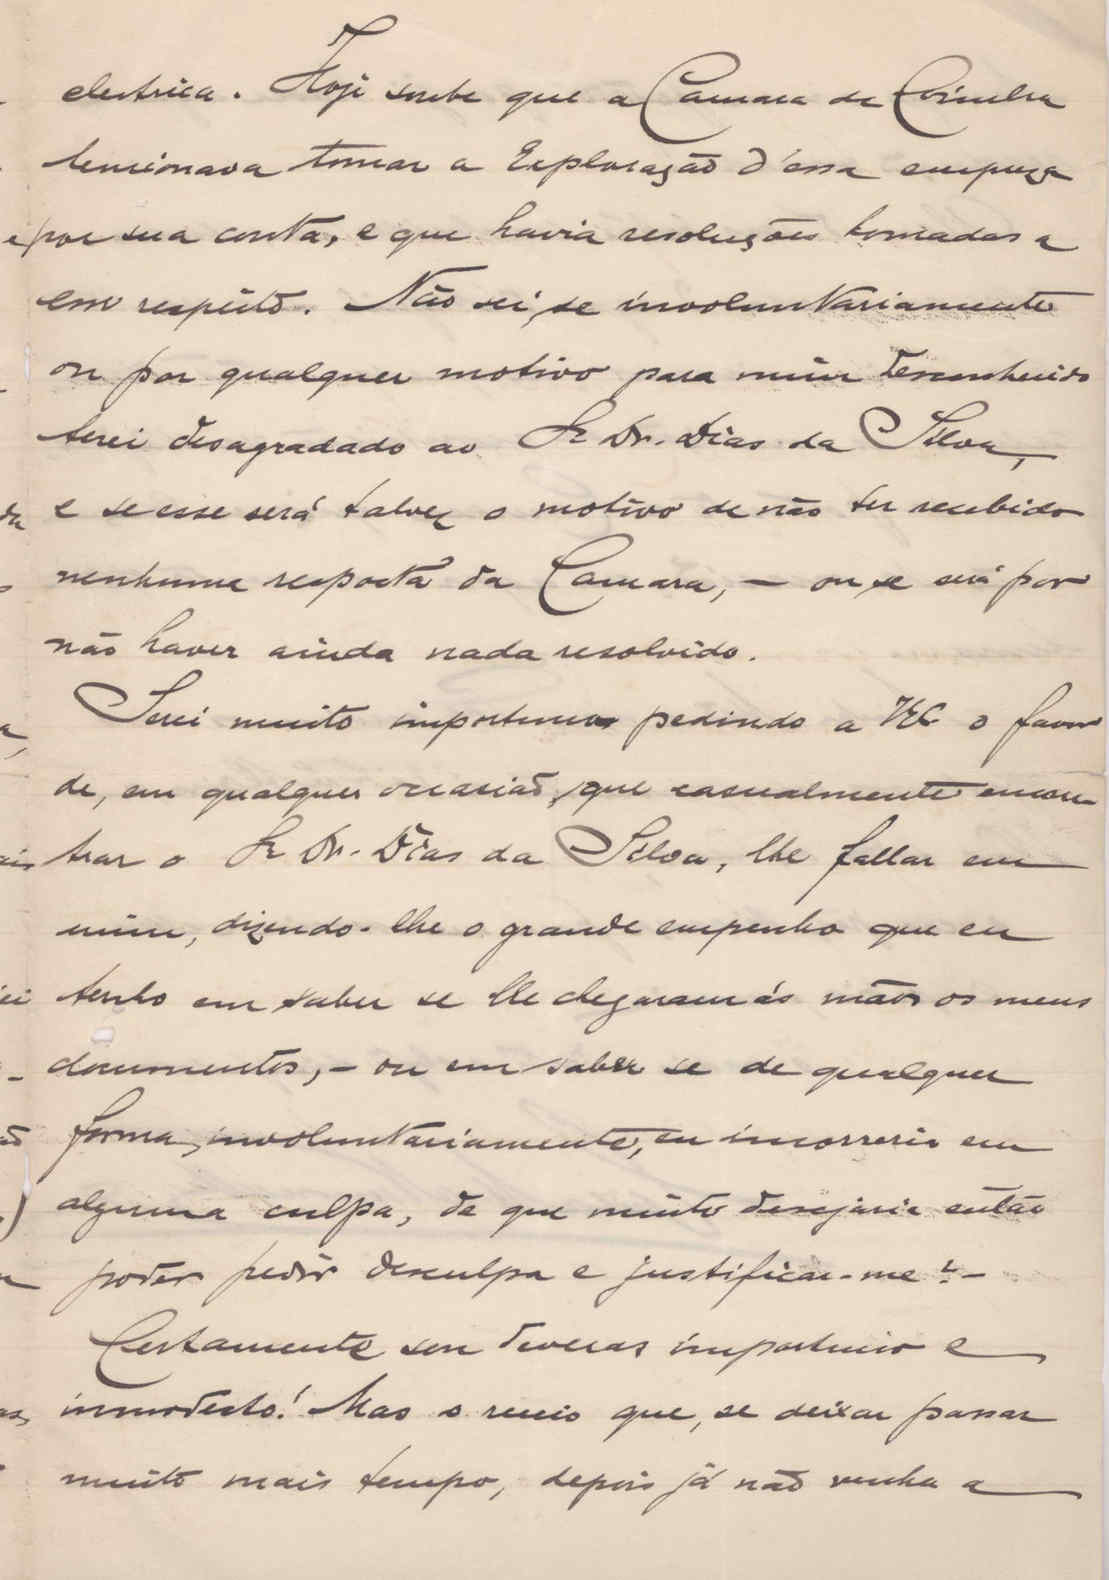 electrica. Hoje soube que a Camara de Coimbra
tencionava tomar a Exploração d'essa empreza
por sua conta, e que havia resoluções tomadas a
esse respeito. Não sei, se involuntariamente
ou por qualquer motivo para mim desconhecido
terei desagradado ao Sr Dr. Dias da Silva,
e se esse será talvez o motivo de não ter recebido
nenhuma resposta da Camara, — ou se será por
não haver ainda nada resolvido.
Serei muito importuno pedindo a VEx o favor
de, em qualquer occasião, que casualmente encon-
trar o Sr Dr. Dias da Silva, lhe fallar em
mim, dizendo-lhe o grande empenho que eu
tenho em saber se lhe chegaram ás mãos os meus
documentos, — ou em saber se de qualquer
forma, involuntariamente, eu incorreria em
alguma culpa, de que muito desejaria então
poder pedir desculpa e justificar-me? —
Certamente sou deveras importuno e
immodesto! Mas o receio que, se deixar passar
muito mais tempo, depois já não venha a